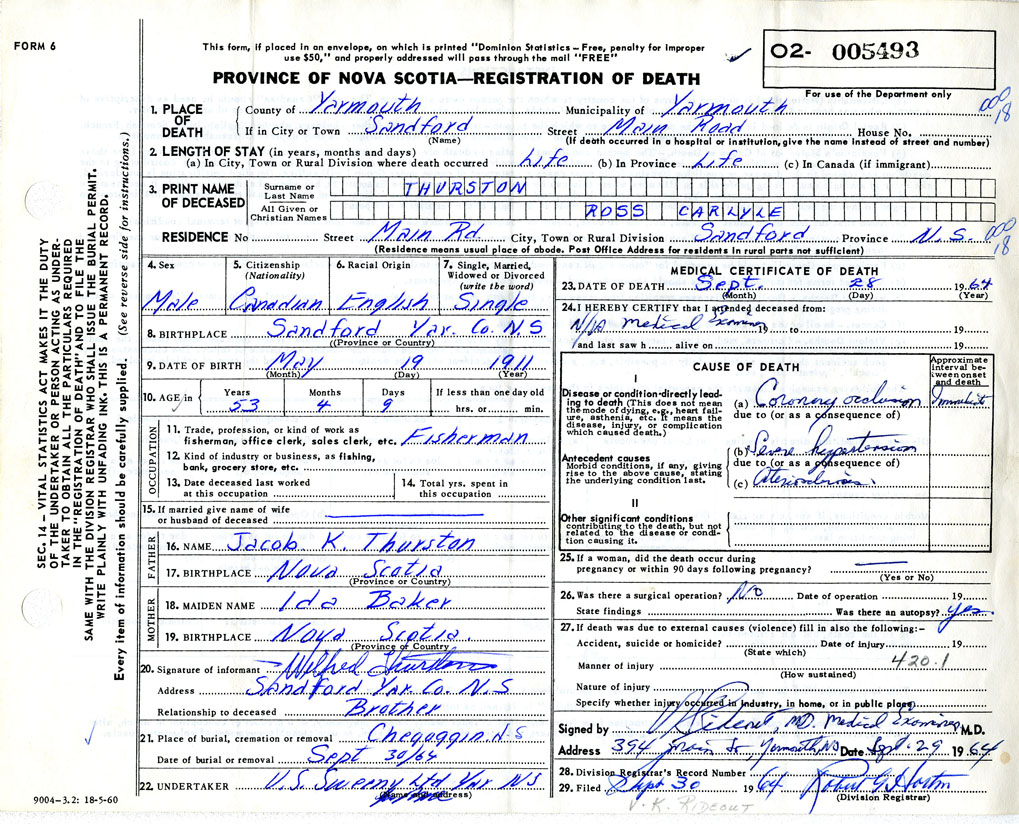 FORM 6
This form, if placed in an envelope, on which is printed "Dominion Statistics – Free, penalty for improper
use $50," and properly addressed will pass through the mail "FREE"
02- 005493
For use of the Department only
PROVINCE OF NOVA SCOTIA—REGISTRATION OF DEATH
000
18
1. PLACE OF DEATH
County of Yarmouth Municipality of Yarmouth
If in City or Town Sandford Street Main Road House No.
(Name) (If death occurred in a hospital or institution, give the name instead of street and number)
2. LENGTH OF STAY (in years, months and days)
(a) In City, Town or Rural Division where death occurred Life (b) In Province Life (c) In Canada (if immigrant)
3. PRINT NAME OF DECEASED
Surname or Last Name THURSTON
All Given or Christian Names ROSS CARLYLE
RESIDENCE No Street Main Rd. City, Town or Rural Division Sandford Province N.S.
000
18
(Residence means usual place of abode. Post Office Address for residents in rural parts not sufficient)
4. Sex
Male
5. Citizenship
(Nationality)
Canadian
6. Racial Origin
English
7. Single, Married,
Widowed or Divorced
(write the word)
Single
8. BIRTHPLACE Sandford Yar. Co. N.S
(Province or Country)
9. DATE OF BIRTH May 19 1911
(Month) (Day) (Year)
10. AGE in
Years Months Days If less than one day old
53 4 9 hrs. or min.
OCCUPATION
11. Trade, profession, or kind of work as
fisherman, office clerk, sales clerk, etc. Fisherman
12. Kind of industry or business, as fishing,
bank, grocery store, etc.
13. Date deceased last worked
at this occupation
14. Total yrs. spent in
this occupation
15. If married give name of wife
or husband of deceased
FATHER
16. NAME Jacob K. Thurston
17. BIRTHPLACE Nova Scotia
(Province or Country)
MOTHER
18. MAIDEN NAME Ida Baker
19. BIRTHPLACE Nova Scotia.
(Province or Country)
20. Signature of informant Wilfred Thurston
Address Sandford Yar. Co. N.S
Relationship to deceased Brother
21. Place of burial, cremation or removal Chegoggin N.S
Date of burial or removal Sept 30/64
22. UNDERTAKER U.S. Sweeny Ltd Yar. N.S
(Name and address)
MEDICAL CERTIFICATE OF DEATH
23. DATE OF DEATH Sept. 28 1964
(Month) (Day) (Year)
24. I HEREBY CERTIFY that I attended deceased from:
N/A Medical Examiner to 19
and last saw h alive on 19
CAUSE OF DEATH
Approximate interval between onset and death
I
Disease or condition directly leading to death (This does not mean the mode of dying, e.g., heart failure, asthenia, etc. It means the disease, injury, or complication which caused death.)
(a) Coronary occlusion Immediate
due to (or as a consequence of)
Antecedent causes
Morbid conditions, if any, giving rise to the above cause, stating the underlying condition last.
(b) Severe hypertension
due to (or as a consequence of)
(c) Arteriosclerosis.
II
Other significant conditions
contributing to the death, but not related to the disease or condition causing it.
25. If a woman, did the death occur during
pregnancy or within 90 days following pregnancy?
(Yes or No)
26. Was there a surgical operation? No Date of operation 19
State findings Was there an autopsy? yes.
27. If death was due to external causes (violence) fill in also the following:–
Accident, suicide or homicide? Date of injury 19
(State which)
420.1
Manner of injury
(How sustained)
Nature of injury
Specify whether injury occurred in industry, in home, or in public place
Signed by Rideout, MD. Medical Examiner M.D.
Address 394 Main St, Yarmouth, NS Date Sept. 29 1964
28. Division Registrar's Record Number
29. Filed Sept 30 1964 Robert G
(Division Registrar)
V. K. RIDEOUT
9004–3.2: 18-5-60
SEC. 14 – VITAL STATISTICS ACT MAKES IT THE DUTY
OF THE UNDERTAKER OR PERSON ACTING AS UNDER-
TAKER TO OBTAIN ALL THE PARTICULARS REQUIRED
IN THE "REGISTRATION OF DEATH" AND TO FILE THE
SAME WITH THE DIVISION REGISTRAR WHO SHALL ISSUE THE BURIAL PERMIT.
WRITE PLAINLY WITH UNFADING INK. THIS IS A PERMANENT RECORD.
Every item of information should be carefully supplied. (See reverse side for instructions.)